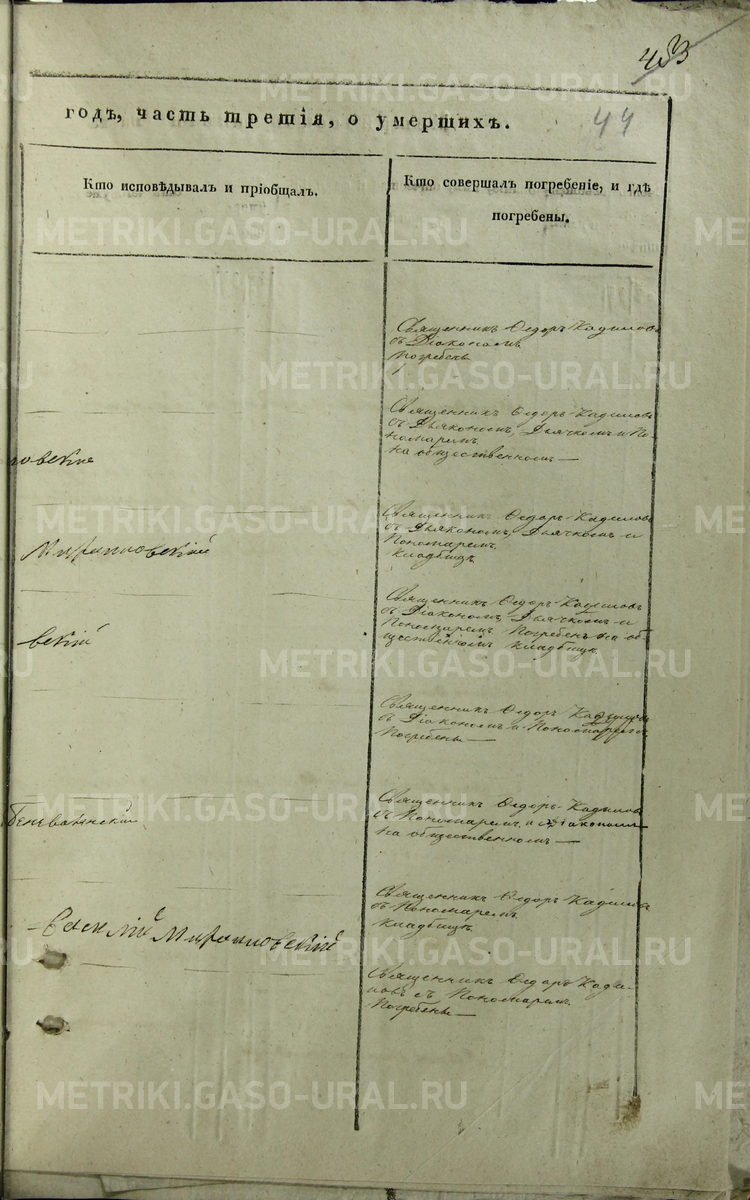 453
44
годъ, часть третія, о умершихъ.
Кто исповѣдывалъ и пріобщалъ.
Кто совершалъ погребеніе, и гдѣ
погребены.
Священникъ Ѳедоръ Кадиловъ
съ Діакономъ
погребенъ
Священникъ Ѳедоръ Кадиловъ
съ Дьякономъ, Дьячкомъ и По-
номаремъ
на общественномъ —
Священникъ Ѳедоръ Кадиловъ
съ Дьякономъ, Дьячкомъ и
Пономаремъ
кладбищѣ
Священникъ Ѳедоръ Кадиловъ
съ Діакономъ, Дьячкомъ и
Пономаремъ Погребенъ на об-
щественномъ кладбищѣ
Священникъ Ѳедоръ Кадиловъ
съ Діакономъ и Пономаремъ
Погребены —
Священникъ Ѳедоръ Кадиловъ
съ Пономаремъ и Діакономъ
на общественномъ —
Василій
Священникъ Ѳедоръ Кадиловъ
съ Пономаремъ
кладбищѣ
Священникъ Ѳедоръ Кади-
ловъ съ Пономаремъ
Погребены —
METRIKI.GASO-URAL.RU